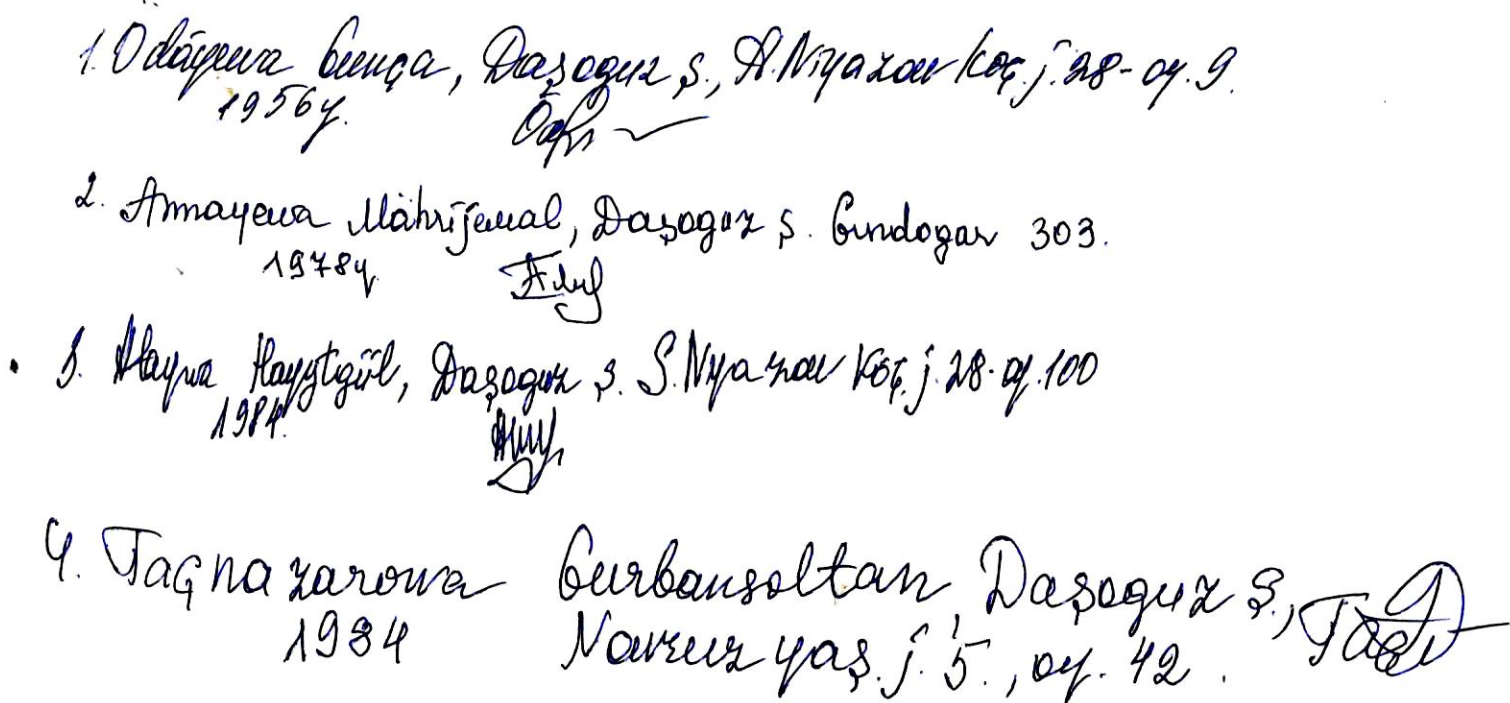 1. Odäýewa Gunça, Daşoguz ş., A.Niyazow köç. j. 28- oý. 9.
1956ý.
2. Annayewa Mähriјemal, Daşoguz ş. Gündogar 303.
1978ý
3. Ataýewa Hayytgül, Daşoguz ş. S.Nyýazow köç. j. 28. oý. 100
1984.
4. Taçnazarowa Gurbansoltan, Daşoguz ş.,
1984 Nawruz ýaş. j. 5., oý. 42.